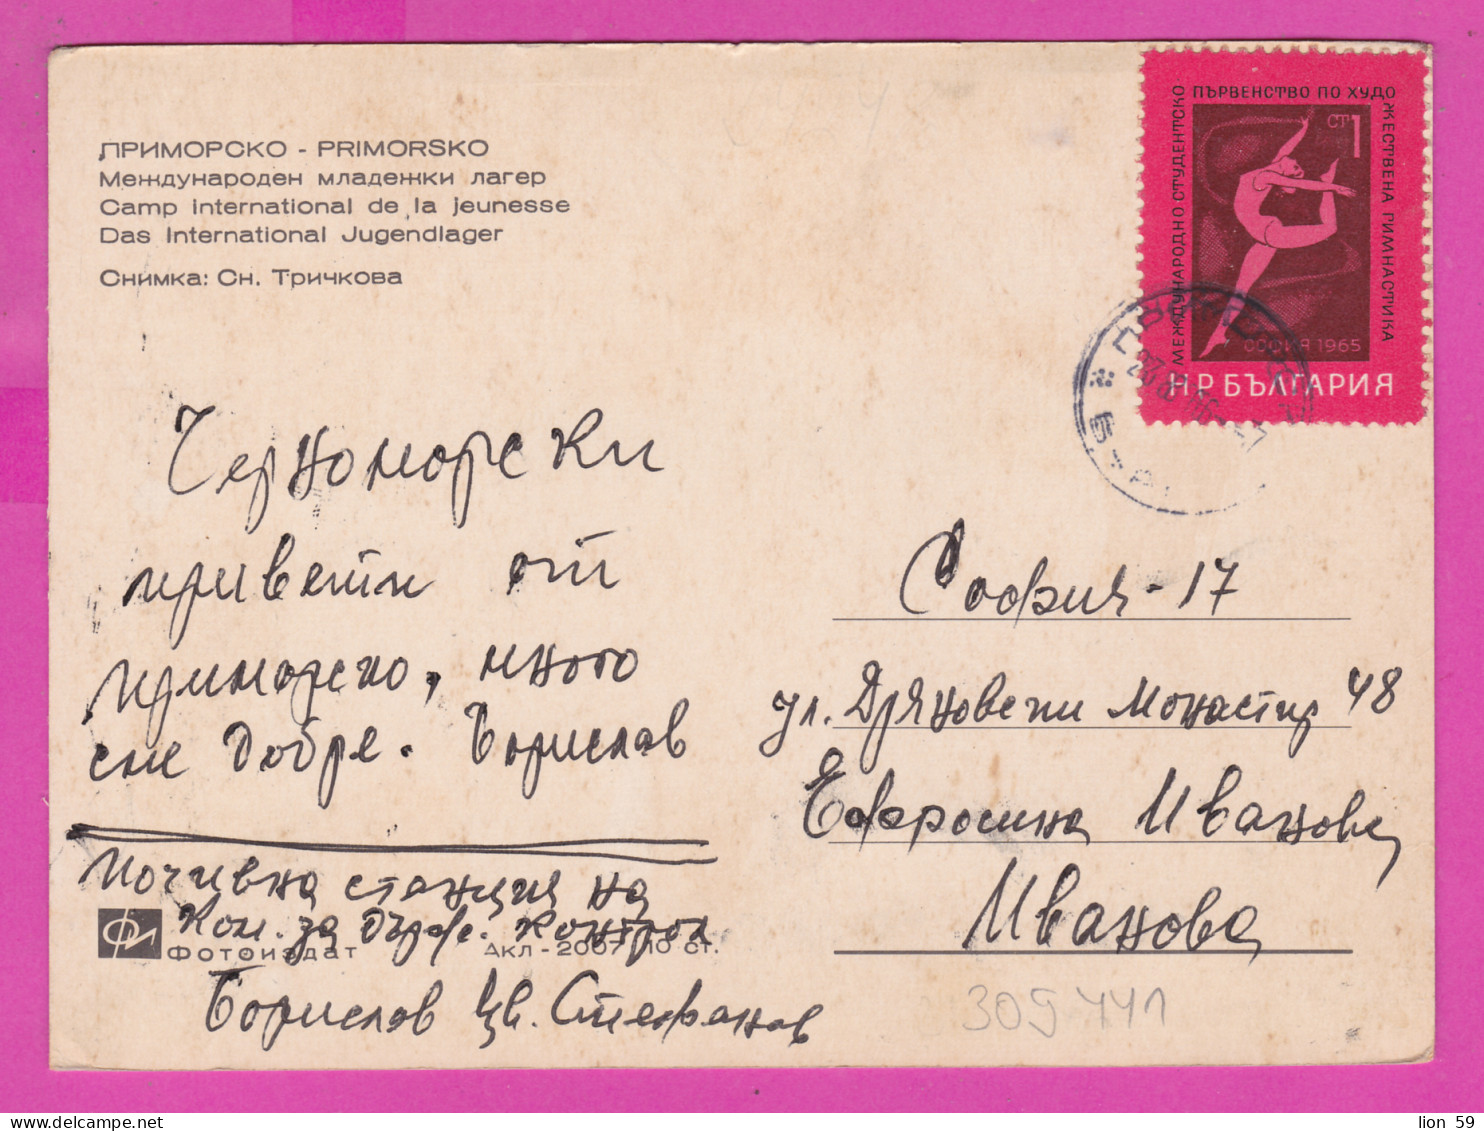 ПРИМОРСКО - PRIMORSKO
Международен младежки лагер
Camp international de la jeunesse
Das International Jugendlager
Снимка: Сн. Тричкова
МЕЖДУНАРОДНО СТУДЕНТСКО
ПЪРВЕНСТВО ПО ХУДО
ЖЕСТВЕНА ГИМНАСТИКА
СТ 1
СОФИЯ 1965
НР БЪЛГАРИЯ
Черноморски
привети от
Приморско, много
сме добре. Борислав
Почивна станция на
Ком. за държ. контрол
Фотоиздат Акл-2007 10 ст.
Борислав Цв. Стефанов
София - 17
ул. Дряновски Монастир 48
Ефросина Иванова
Иванова
309441
lion 59